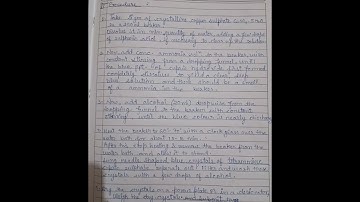 Procedure :
1. Take 5 gm of crystalline copper sulphate
in a beaker.
Dissolve it in min quantity of water, adding a few drops
of sulphuric acid if necessary to clear up the solution
2. Now add conc. ammonia to the beaker with
constant stirring from a dropping funnel until
the blue ppt. of cupric hydroxide first formed
completely dissolves to yield a clear deep
blue solution and there should be a smell
of ammonia in the beaker.
3. Now, add alcohol dropwise from the
dropping funnel to the beaker with constant
stirring until the blue colour is nearly
4. Heat the beaker to 60° to 70° a clock glass over the
water bath for about 20 min.
After this stop heating & remove the beaker from the
water bath and allow it to stand.
Long needle shaped blue crystals of tetraammine
cupric sulphate separate out. Filter and wash these
crystals with a few drops of alcohol.
5. Dry the crystals on a porous plate or in a desiccator,
Weigh the dry crystals and